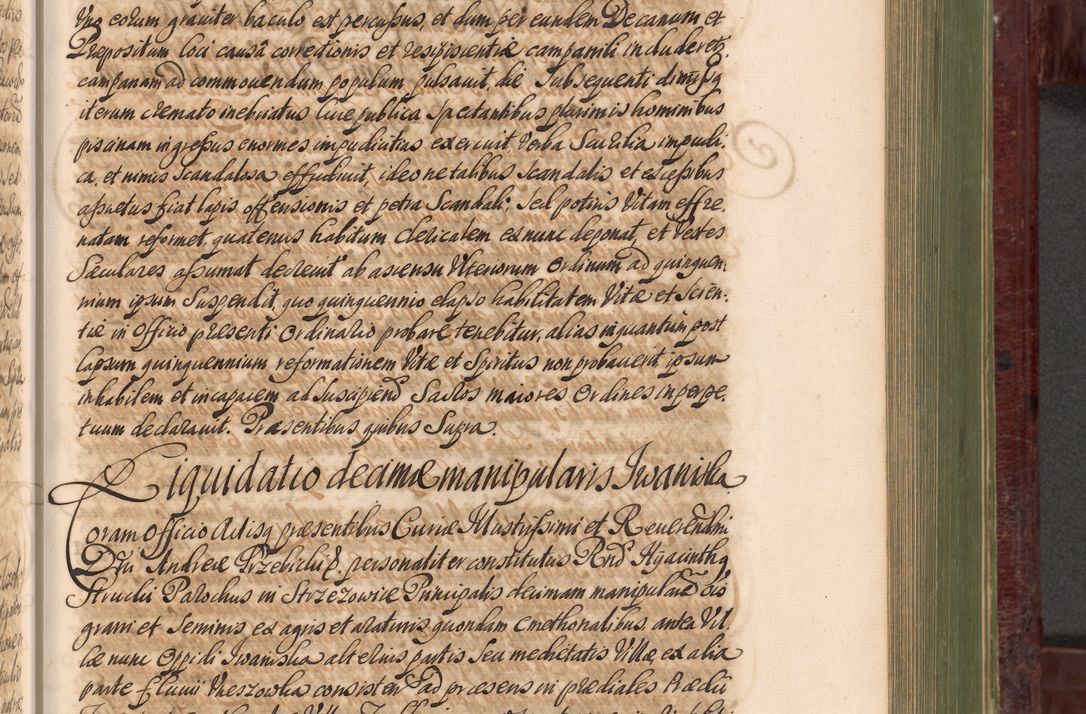 Vno eorum graviter baculo est percussus, et dum per eundem Decanum et
Prepositum loci causâ corredionis et resipiscentiæ campanili includeretr,
campanam ad commouendum populum pulsauit, die Subsequenti dimissq
iterum cremato inebriatus luce publica spectantibus plurimis hominibus
piscinam ingressus enormes impudicitias exercuit Verba Scurilia impudi,
ca, et nimis Scandalosa effudiuit, ideo ne talibus Scandalis et excessibus
assuetus fiat lapis offensionis et petra Scandali; Sed potius Vitam effre,
natam reformet, quatenus habitum Clericalem ex nunc deponat, et Vestes
Sæculares assumat decreuit ab ascensu Vlteriorum Ordinum ad quinquen,
nium ipsum Suspendit, quo quinquennio elapso habilitatem Vitæ et Scien,
tiæ in Officio præsenti Ordinario probare tenebitur, alias inquantum post
lapsum quinquennium reformationem Vitæ et Spiritus non probauerit ipsum
inhabilem et incapacem ad Suscipiend Sacros maiores Ordines in perpe,
tuum declarauit. Præsentibus quibus Supra.
Liquidatio decimæ manipularis Iwaniska
Coram Officio Actisq præsentibus Curiæ Illustrissimi et Reuerendmi
Dni Andreæ Trzebicki E. personaliter constitutus Rnd Hyacinthq
Strucki Parochus in Strzezowice Principalis decimam manipularem
grani et Seminis ex agris et araturis quondam Cmethonalibus antea Vil,
læ nunc Oppidi Iwaniska alterius partis Seu medietatis Villæ, ex alia
parte fluuii consisten ad præsens in prædiales Prædii